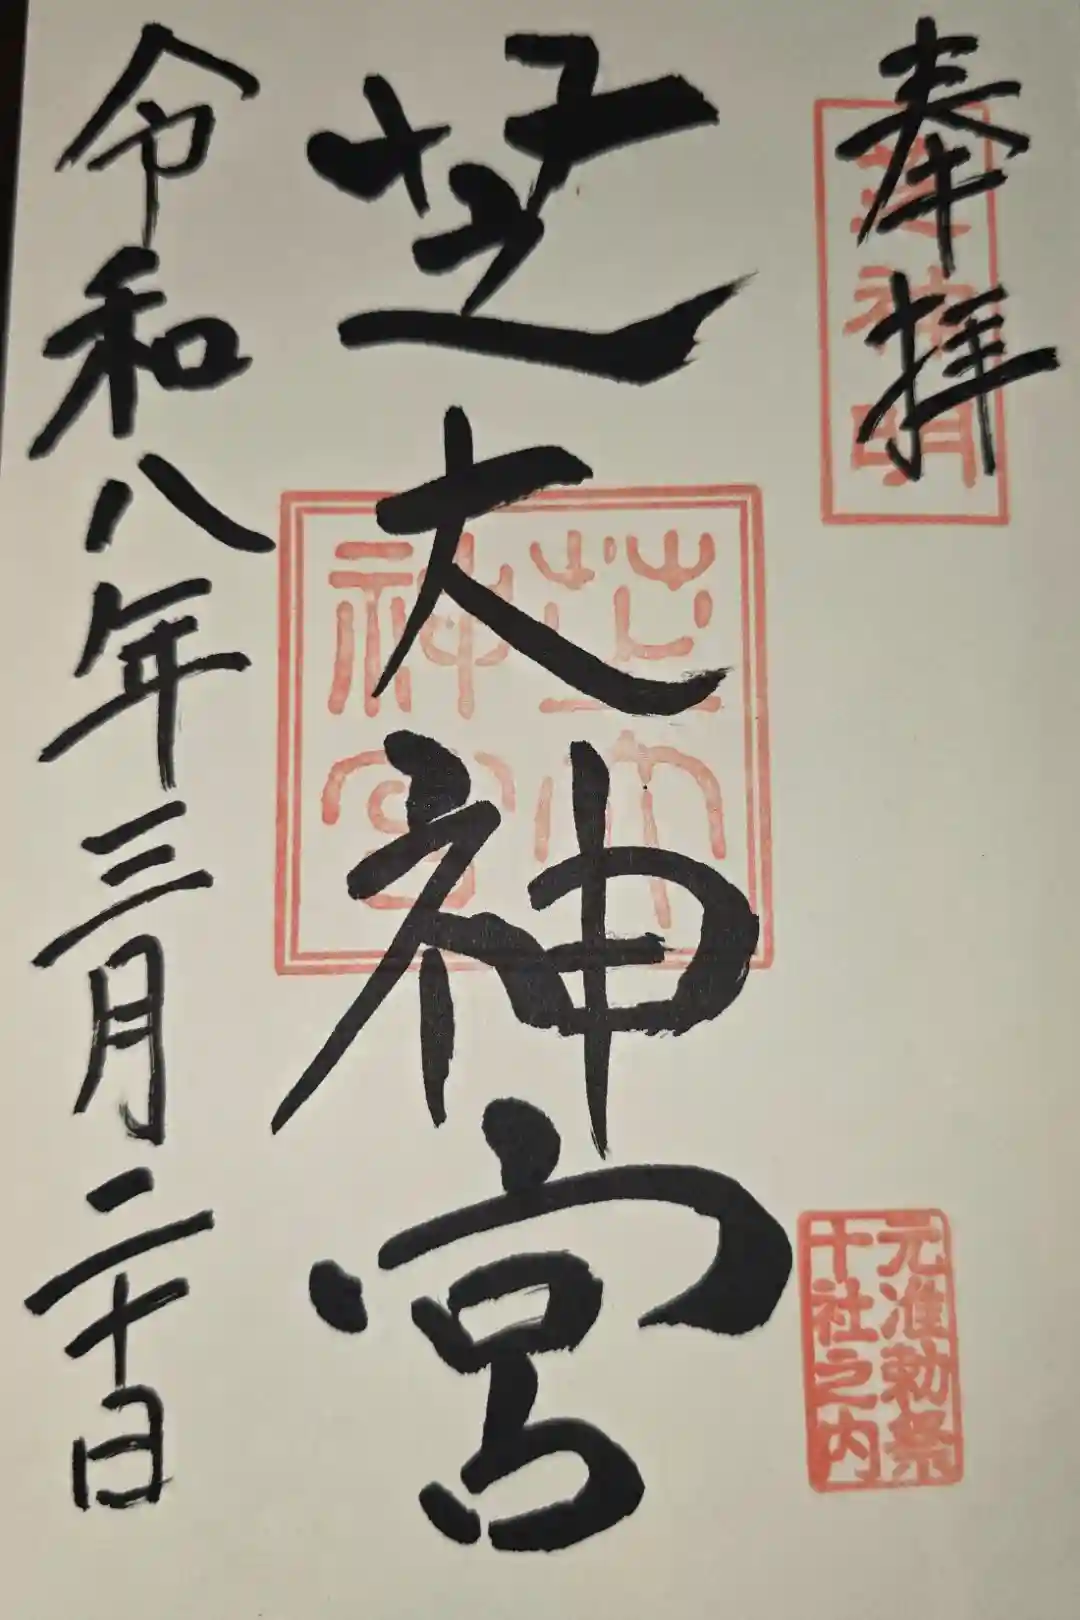 奉拝
芝神明
元准勅祭
十社之内
芝大神宮
芝大
神宮
令和八年三月二十日